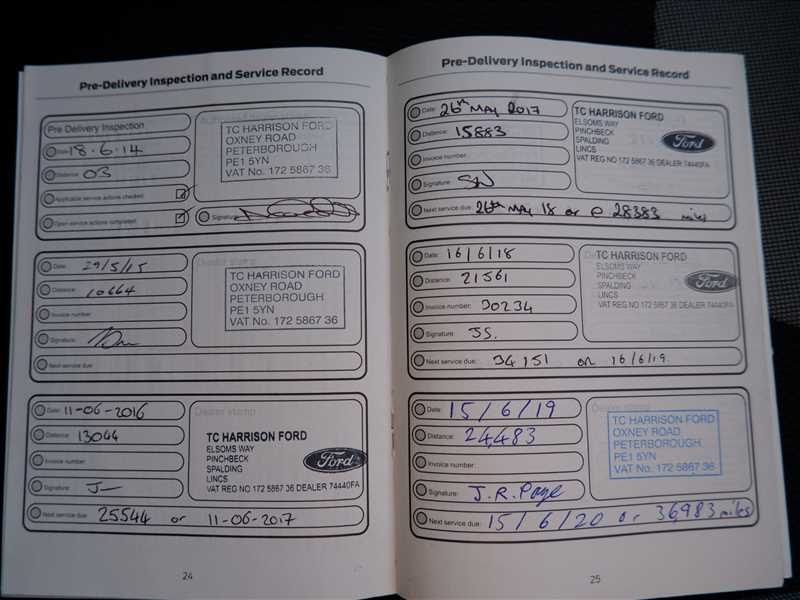 Pre-Delivery Inspection and Service Record
Pre Delivery Inspection
Date: 18.6.14
Distance: 03
Applicable service actions checked:
Open service actions completed:
TC HARRISON FORD
OXNEY ROAD
PETERBOROUGH
PE1 5YN
VAT No. 172 5867 36
Signature:
Date: 29/5/15
Distance: 10664
Invoice number:
Signature:
Next service due:
Dealer stamp
TC HARRISON FORD
OXNEY ROAD
PETERBOROUGH
PE1 5YN
VAT No. 172 5867 36
Date: 11-06-2016
Distance: 13044
Invoice number:
Signature:
Next service due: 25544 or 11-06-2017
Dealer stamp
TC HARRISON FORD
ELSOMS WAY
PINCHBECK
SPALDING
LINCS
VAT REG NO 172 5867 36 DEALER 74440FA
Ford
24
Pre-Delivery Inspection and Service Record
Date: 26th MAY 2017
Distance: 15883
Invoice number:
Signature: SW
Next service due: 26th MAY 18 or @ 28383 miles
TC HARRISON FORD
ELSOMS WAY
PINCHBECK
SPALDING
LINCS
VAT REG NO 172 5867 36 DEALER 74440FA
Ford
Date: 16/6/18
Distance: 21561
Invoice number: 30234
Signature: JS.
Next service due: 34151 or 16/6/19.
TC HARRISON FORD
ELSOMS WAY
PINCHBECK
SPALDING
LINCS
VAT REG NO 172 5867 36 DEALER 74440FA
Ford
Date: 15/6/19
Distance: 24,483
Invoice number:
Signature: J.R. Page
Next service due: 15/6/20 or 36,983 miles
Dealer stamp
TC HARRISON FORD
OXNEY ROAD
PETERBOROUGH
PE1 5YN
VAT No. 172 5867 36
25